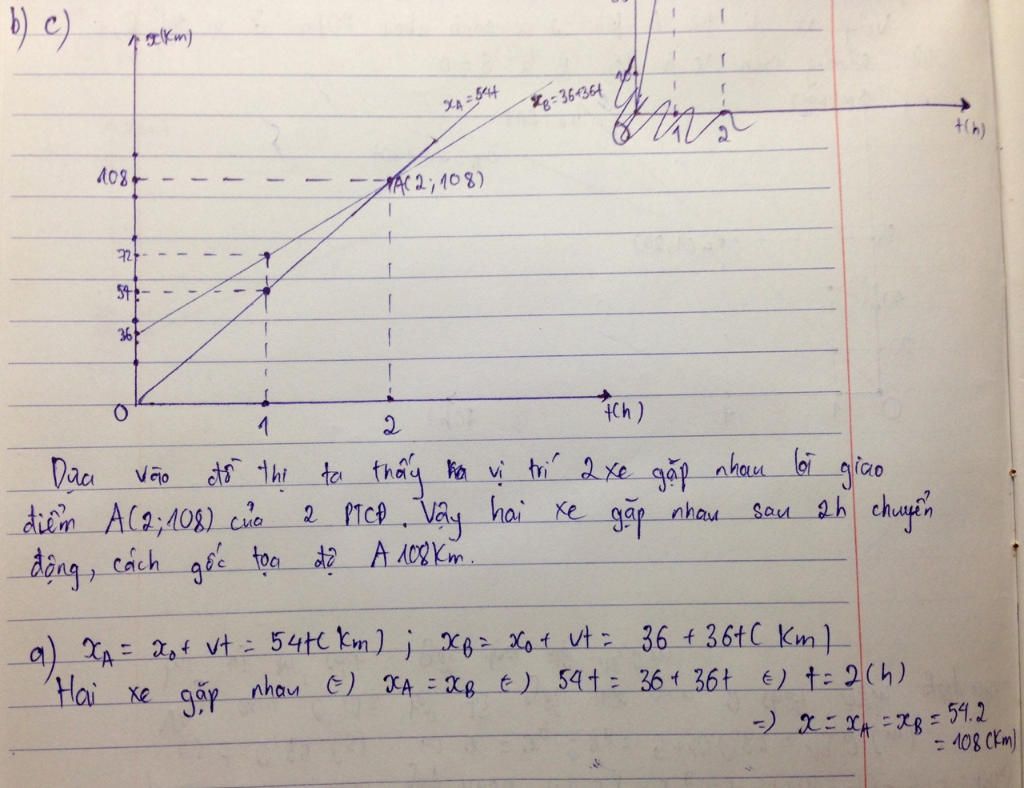 b) c)
x(Km)
x_A = 54t
x_B = 36+36t
10
0 1 2
t(h)
108
A(2;108)
72
54
36
0
1 2
t(h)
Dựa vào đồ thị ta thấy vị trí 2 xe gặp nhau là giao
điểm A(2;108) của 2 PTCĐ. Vậy hai xe gặp nhau sau 2h chuyển
động, cách gốc tọa độ A 108Km.
a) x_A = x_0 + vt = 54t (Km) ; x_B = x_0 + vt = 36 + 36t (Km)
Hai xe gặp nhau (=) x_A = x_B (=) 54t = 36 + 36t (=) t = 2 (h)
=) x = x_A = x_B = 54.2
= 108 (Km)